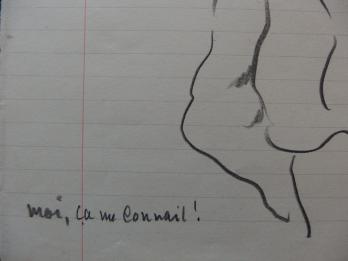 moi, ça me connait !